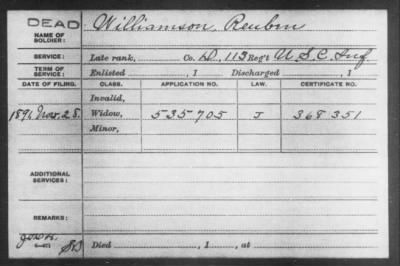 DEAD
NAME OF SOLDIER: Williamson, Reuben
SERVICE: Late rank, Co. D, 113 Reg't U.S.C. Inf.
TERM OF SERVICE: Enlisted , 1 Discharged , 1
DATE OF FILING. CLASS. APPLICATION NO. LAW. CERTIFICATE NO.
Invalid,
1891 Nov. 28. Widow, 535,705 J 368351
Minor,
ADDITIONAL SERVICES:
REMARKS:
Died , 1 , at